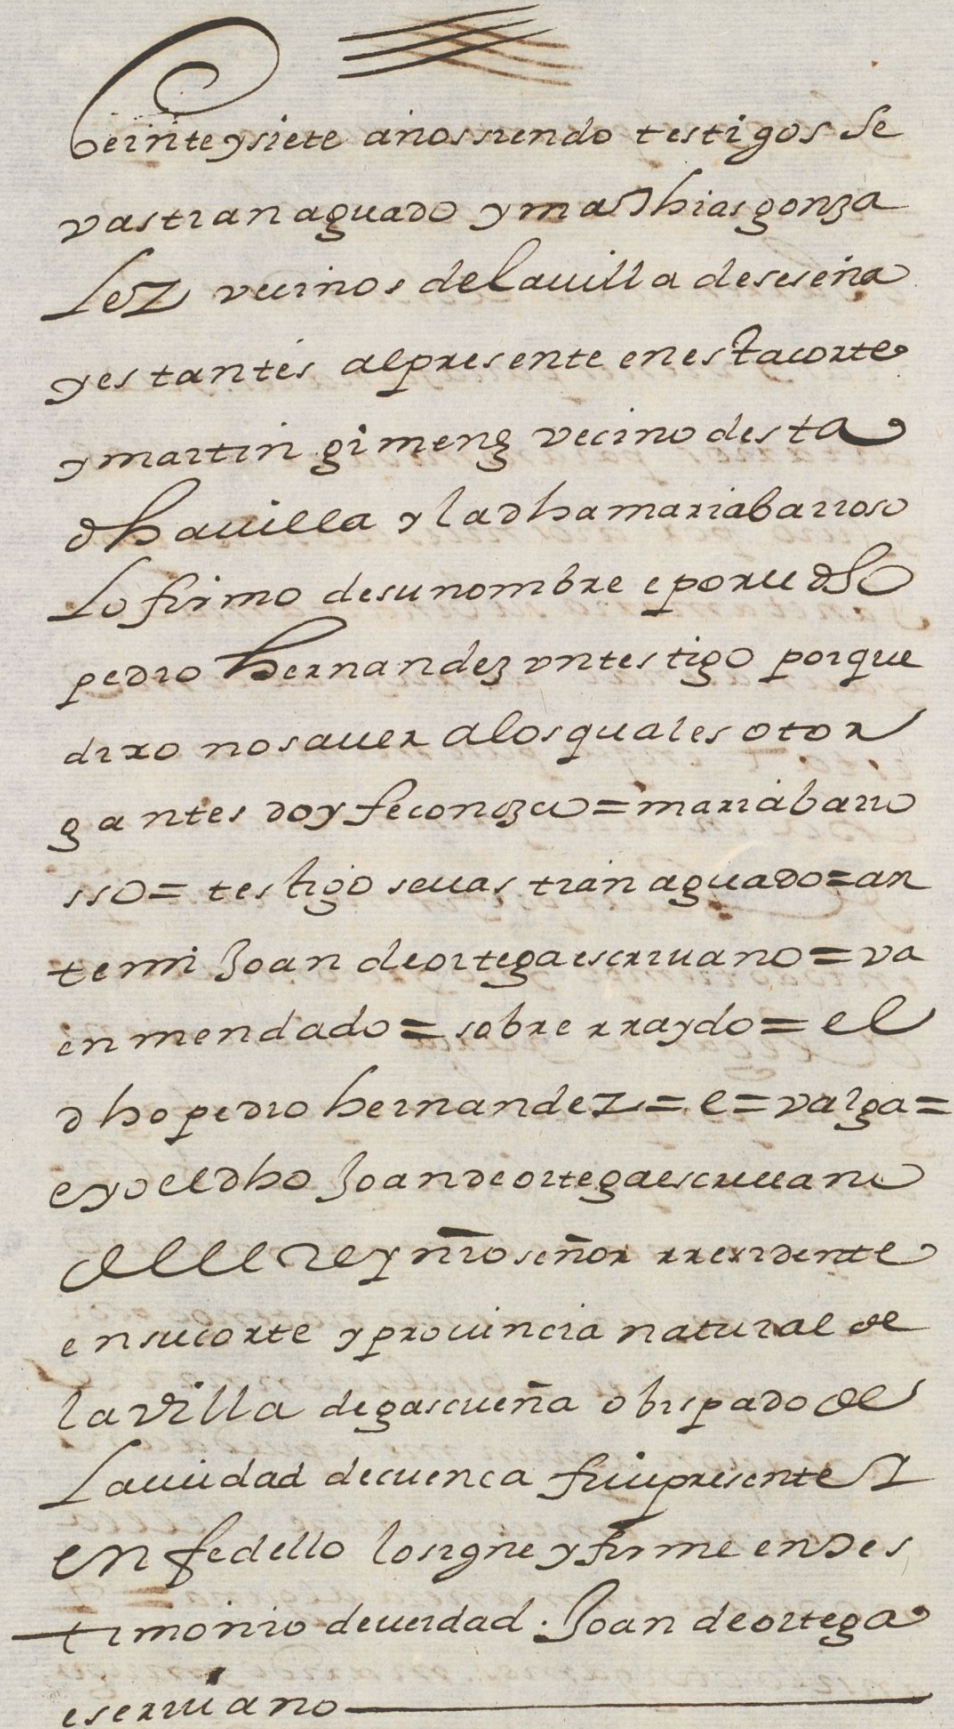 Veinte y siete años siendo testigos Se
vastian aguado y mathias gonza
Lez vecinos de la uilla de seseña
y estantes al presente en esta corte
y martin gimenez vecino desta
dha uilla y la dha maria barroso
Lo firmo de su nombre e por el dho
pedro hernandez vn testigo porque
dixo no sauer a los quales otor
gantes doy fe conozco = maria barro
sso = testigo seuastian aguado = an
temi Joan de ortega escriuano = va
enmendado = sobre rraydo = el
dho pedro hernandez = e = valga =
e yo el dho Joan de ortega escriuano
del Rey nro señor rresidente
en su corte y prouincia natural de
la villa de gascueña obispado de
La ciudad de cuenca fui presente
en fe dello lo signe y firme en tes
timonio de uerdad. Joan de ortega
escriuano